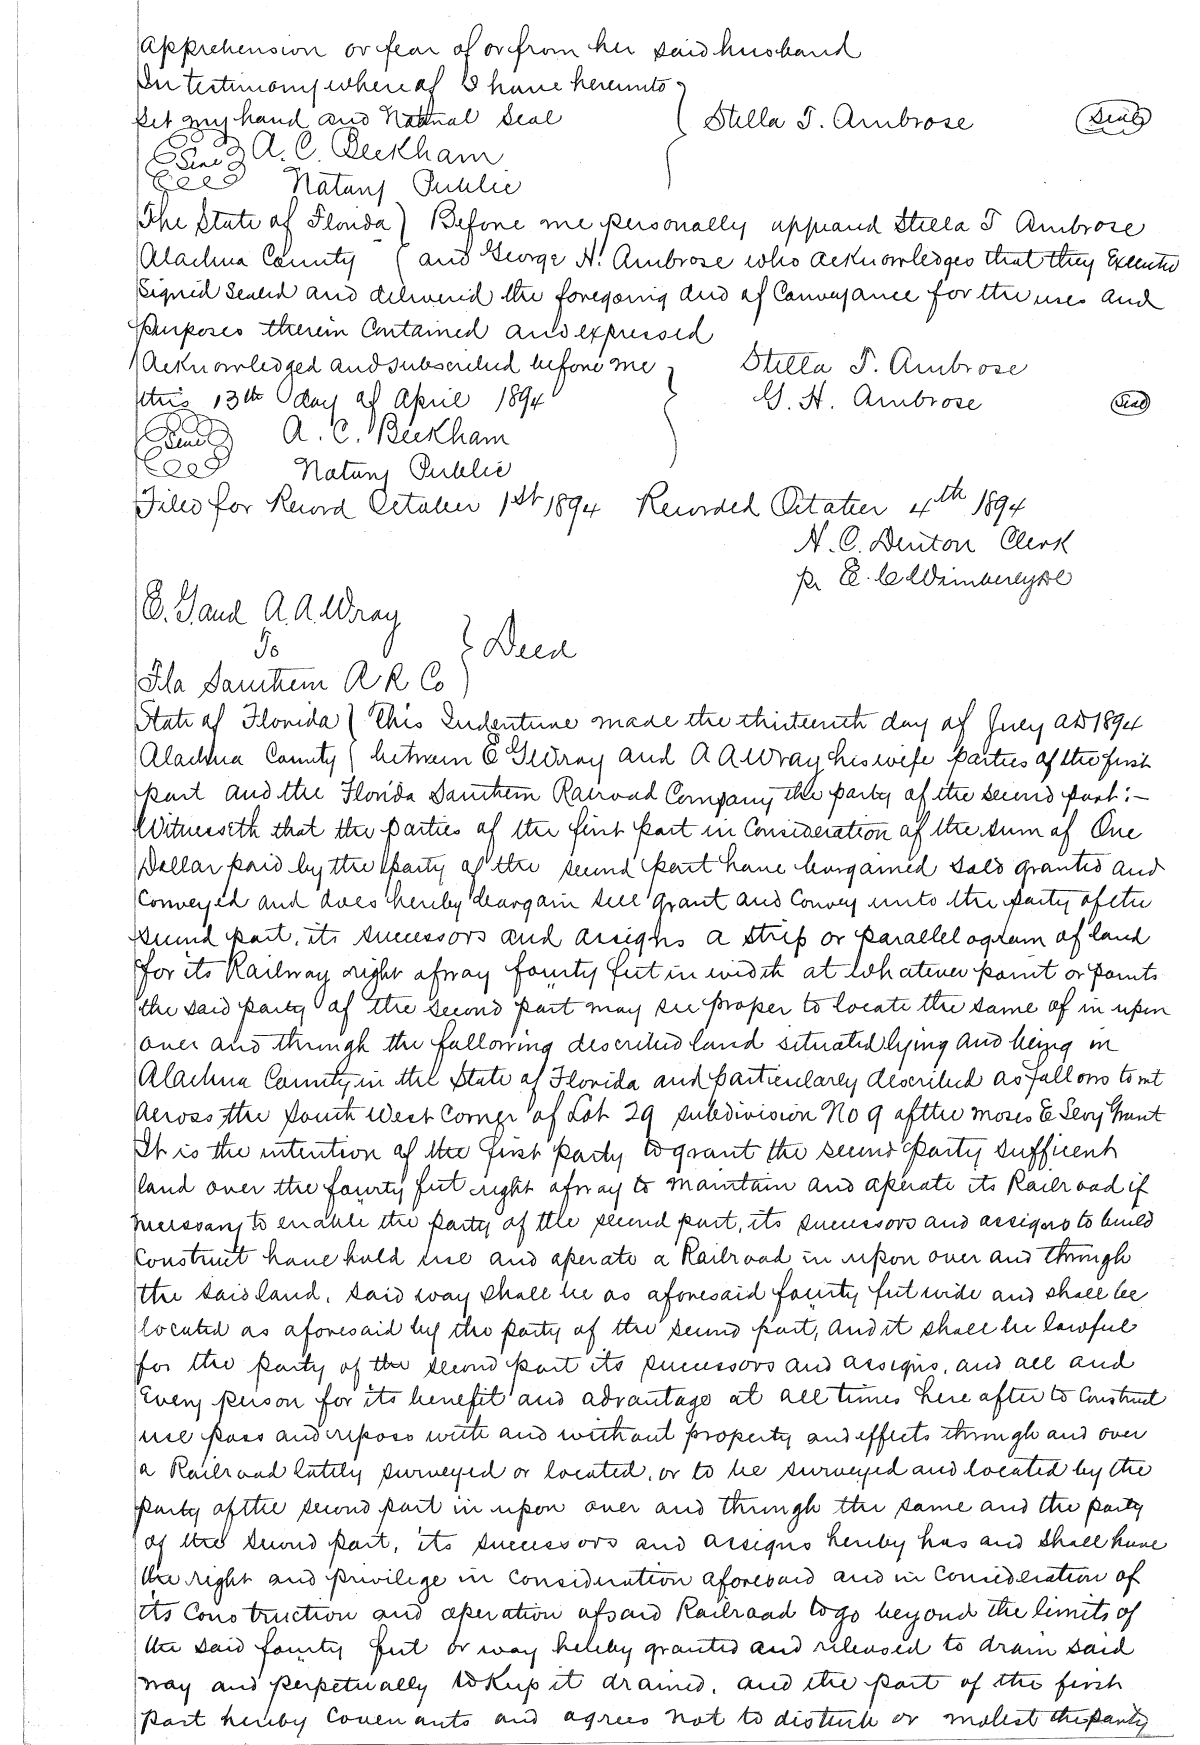 Apprehension or fear of or from her said husband
In testimony whereof I have hereunto
Set my hand and Notarial Seal } Stella T. Ambrose (Seal)
(Seal) A. C. Beckham
Notary Public
The State of Florida ) Before me personally appeared Stella T Ambrose
Alachua County ( and George H. Ambrose who acknowledges that they Executed
Signed Sealed and delivered the foregoing deed of Conveyance for the uses and
purposes therein Contained and expressed
Acknowledged and subscribed before me } Stella T. Ambrose
this 13th day of April 1894 G. H. Ambrose (Seal)
(Seal) A. C. Beckham
Notary Public
Filed for Record October 1st 1894 Recorded October 4th 1894
H. C. Denton Clerk
pr E. C. Wimberly DC
E. G. and A. A. Wray
To } Deed
Fla Southern R R Co
State of Florida ( This Indenture made the thirteenth day of July AD 1894
Alachua County ( between E G Wray and A A Wray his wife parties of the first
part and the Florida Southern Railroad Company the party of the second part:-
Witnesseth that the parties of the first part in Consideration of the sum of One
Dollar paid by the party of the second part have bargained sold granted and
Conveyed and does hereby bargain sell grant and Convey unto the party of the
second part, its successors and assigns a strip or parallelogram of land
for its Railway right of way fourty feet in width at whatever point or points
the said party of the second part may see proper to locate the same of in upon
over and through the following described land situated lying and being in
Alachua County in the State of Florida and particularly described as follows to wit
Across the South West Corner of Lot 29 subdivision No 9 of the Moses E Levy Grant
It is the intention of the first party to grant the second party sufficent
land over the fourty feet right of way to maintain and operate its Railroad if
necessary to enable the party of the second part, its successors and assigns to build
Construct have hold use and operate a Railroad in upon over and through
the said land, said way shall be as aforesaid fourty feet wide and shall be
located as aforesaid by the party of the second part, and it shall be lawful
for the party of the second part its successors and assigns, and all and
Every person for its benefit and advantage at all times here after to Construct
use pass and repass with and without property and effects through and over
a Railroad lately surveyed or located, or to be surveyed and located by the
party of the second part in upon over and through the same and the party
of the second part, its successors and assigns hereby has and shall have
the right and privilege in consideration aforesaid and in Consideration of
its Construction and operation of said Railroad to go beyond the limits of
the said fourty feet or way hereby granted and released to drain said
way and perpetually to Keep it drained, and the part of the first
part hereby Covenants and agrees not to disturb or molest the party